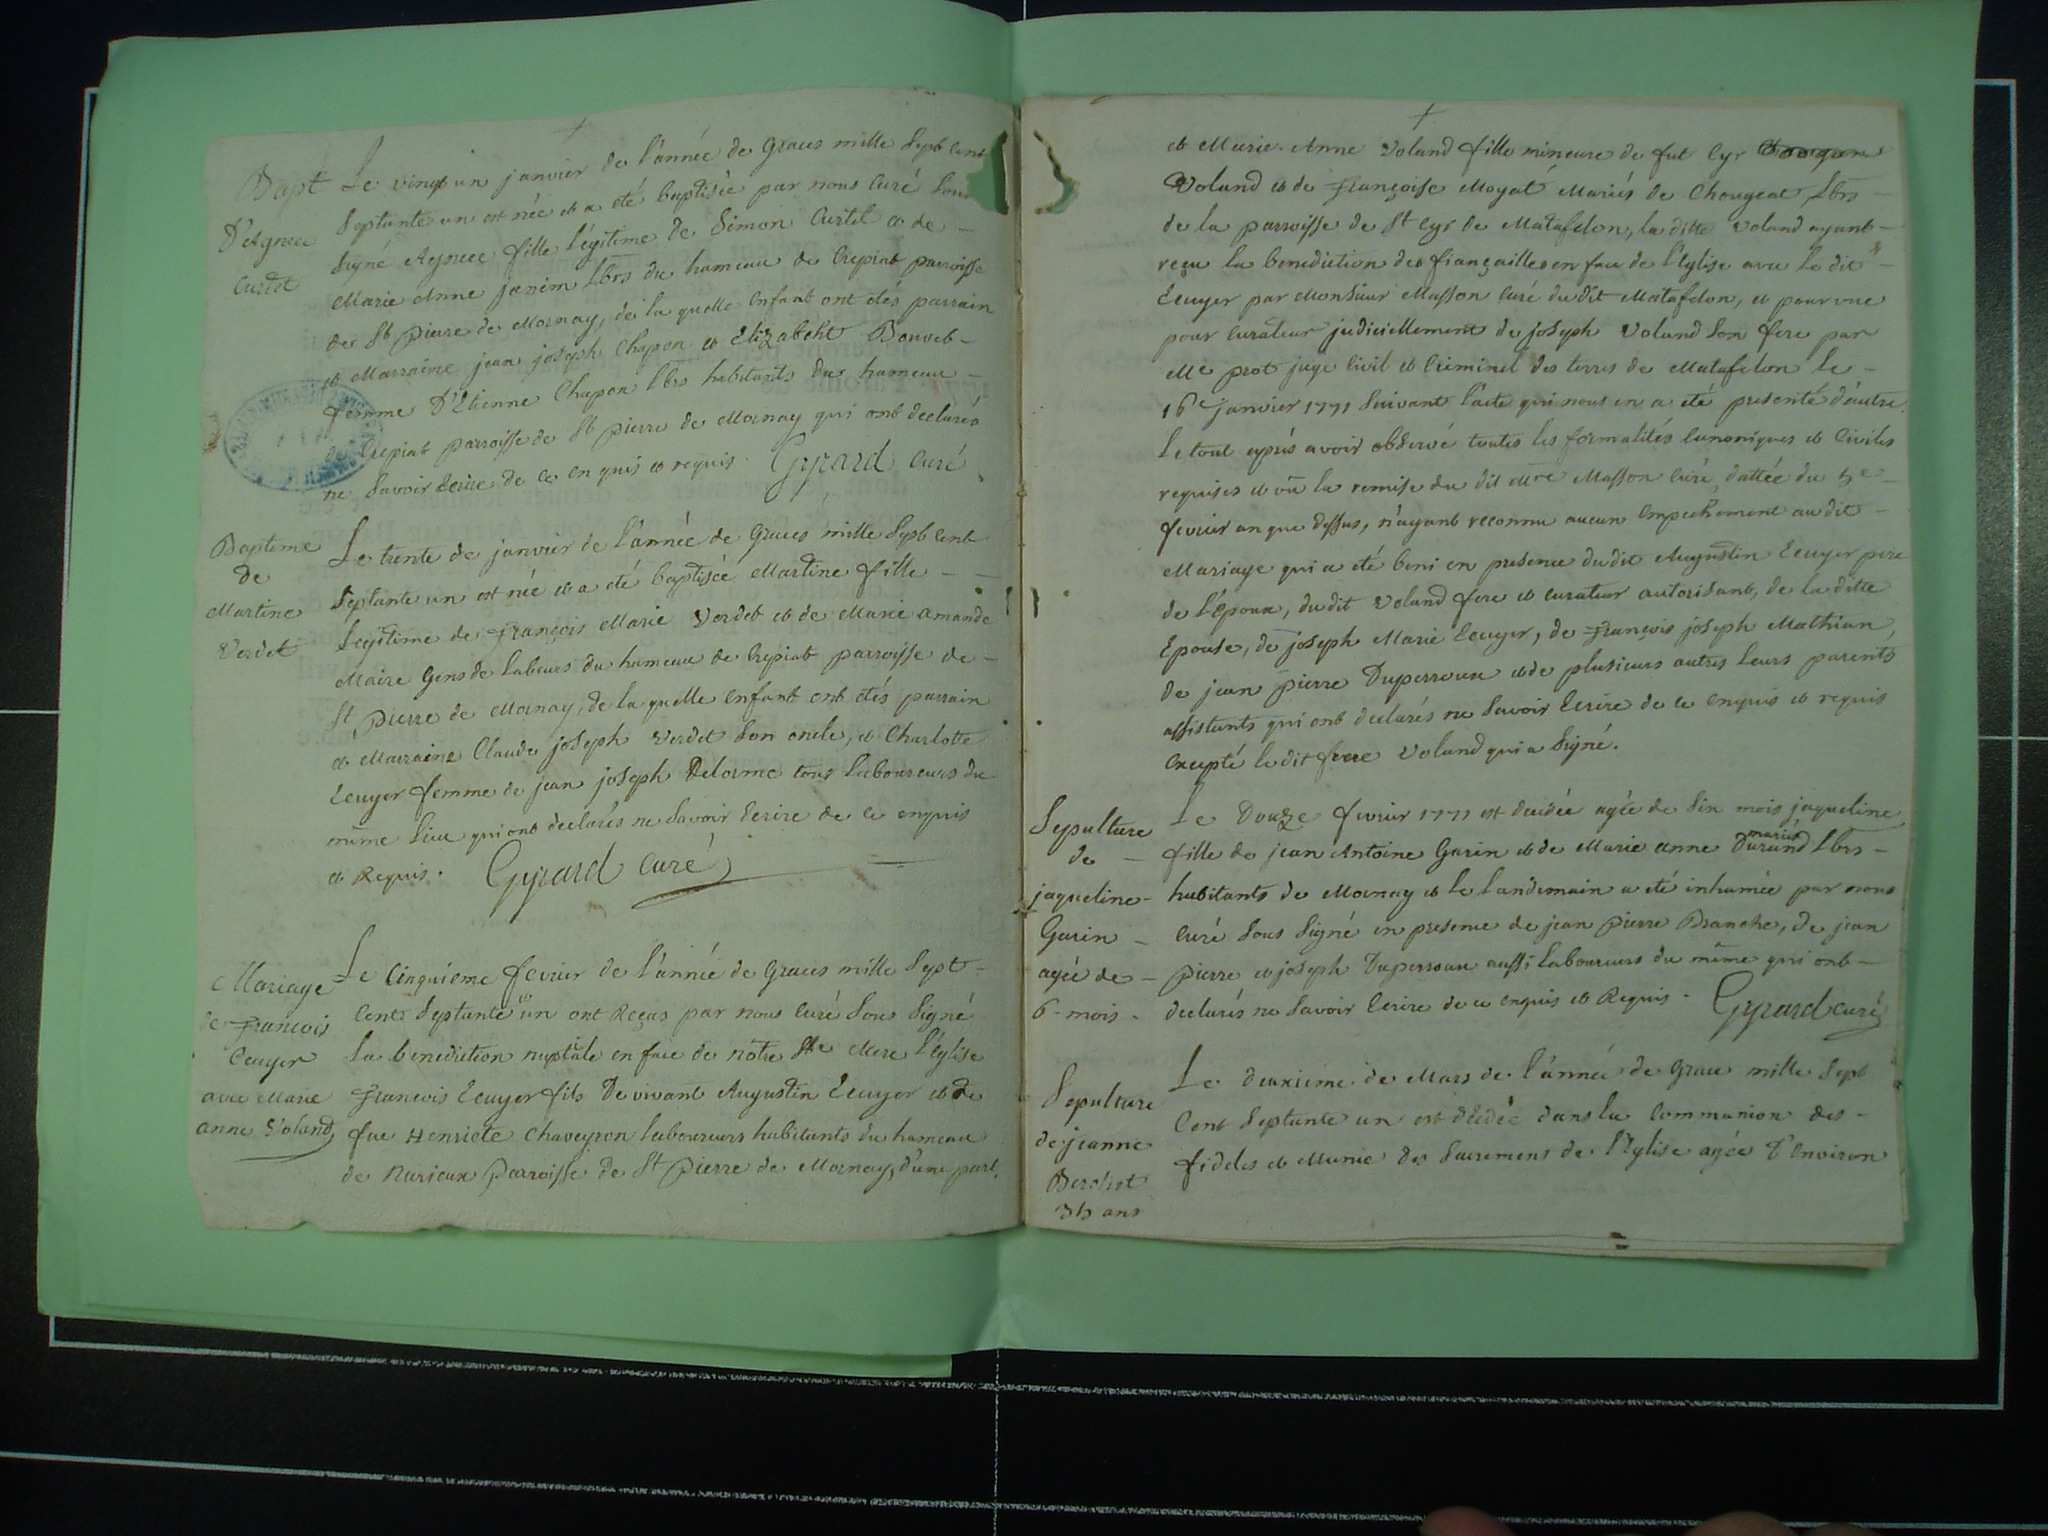 Bapt
D'Agnece
Curtet
Le vingt un janvier de l'année de Graces mille Sept Cent
Septante un est née et a été baptisée par nous Curé Sous
Signé Agnece fille légitime de Simon Curtet et de -
Marie Anne janin Lbrs du hameau de Crepiat parroisse
de St pierre de Mornay, de la quelle enfant ont étés parrain
et Marraine jean joseph Chapon et Elizabeht Bonvet -
femme D'Etienne Chapon Lbrs habitants du hameau -
de Crepiat parroisse de St pierre de Mornay qui ont declarés
ne Savoir Ecrire de ce en quis et requis. Gyrard Curé
Baptême
de
Martine
Verdet
Le trente de janvier de l'année de Graces mille Sept Cent
Septante un est née et a été baptisée Martine fille - -
Legitime de François Marie Verdet et de Marie Amande
Maire Gens de Labeurs du hameau de Crepiat parroisse de -
St pierre de Mornay, de la quelle enfant ont étés parrain
et Marraine Claude joseph Verdet Son oncle, et Charlotte
Ecuyer femme de jean joseph Delorme tous Laboureurs du
même Lieu qui ont declarés ne Savoir Ecrire de ce enquis
et Requis. Gyrard Curé
Mariage
de François
Ecuyer
avec Marie
Anne Voland
Le Cinquieme fevrier de l'année de Graces mille Sept -
Cent Septante un ont Reçus par nous Curé Sous Signé
la benediction nuptiale en face de nôtre Ste Mere l'église
François Ecuyer fils De vivant Augustin Ecuyer et de
fue Henriete Chaveyron laboureurs habitants du hameau
de Nurieux Parroisse de St Pierre de Mornay, d'une part.
et Marie Anne Voland fille mineure de fut Cyr
Voland et de Françoise Moyat Mariés de Chougeat Lbrs -
de la parroisse de St Cyr de Matafelon, la ditte Voland ayant -
reçu la benediction des fiançailles en face de l'Eglise avec le dit -
Ecuyer par Monsieur Masson Curé du dit Matafelon, et pourvue
pour Curateur judiciellement de joseph Voland Son fere par
Me prot juge Civil et Criminel des terres de Matafelon le -
16e janvier 1771 Suivant l'acte qui nous en a été presenté d'autre.
le tout après avoir observé toutes les formalités Canoniques et Civiles
requises et vû la remise du dit Mre Masson Curé, dattée du 5e -
fevrier an que dessus, n'ayant reconnu aucun empechement au dit -
Mariage qui a été beni en presence du dit Augustin Ecuyer pere
de l'époux, du dit Voland fere et curateur autorisant, de la ditte
Epouse, de joseph Marie Ecuyer, de François joseph Mathian,
de jean pierre Duperroux et de plusieurs autres leurs parents
assistants qui ont declarés ne Savoir Ecrire de ce enquis et requis
Excepté le dit frere Voland qui a Signé.
Sepulture
de -
jaqueline -
Garin -
agée de -
6 - mois.
Le Douze fevrier 1771 est decedée agée de Six mois jaqueline
fille de jean Antoine Garin et de Marie anne Durand mariés Lbrs -
habitants de Mornay et le Landemain a été inhumée par nous
Curé Sous Signé en presence de jean pierre Branche, de jean
pierre et joseph Duperroux aussi Laboureurs du même qui ont -
declarés ne Savoir Ecrire de ce enquis et Requis. Gyrard Curé
Sepulture
de jeanne
Berchet
35 ans
Le deuxieme de Mars de l'année de Grace mille Sept
Cent Septante un est décedée dans la Communion des -
fideles et Munie des Sacremens de l'Eglise agée D'Environ